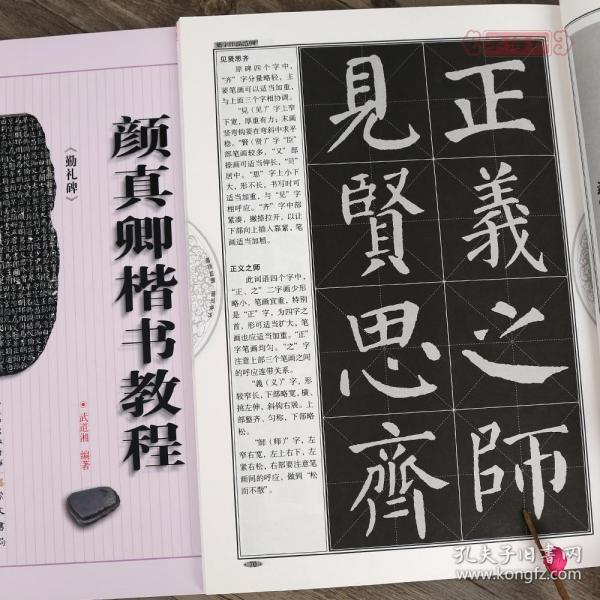 颜真卿楷书教程
《勤礼碑》
武道湘 编著
集字作品范例
见贤思齐
原碑四个字中，
“齐”字分量略轻，主
要笔画可以适当加重，
与上面三个字相协调。
“见（见）”字上窄
下宽，厚重有力；末画
竖弯钩要在弯斜中求平
稳。“賢（贤）”字“臣”
部笔画较多，“又”部
捺画可适当伸长，“贝”
居中。“思”字上小下
大，形不长，书写时可
适当加重，与“见”字
相呼应。“齐”字中部
紧凑，撇捺拉开，以让
下部向上插入靠紧，笔
画适当加粗。
正义之师
此词语四个字中，
“正、之”二字画少形
略小，笔画宜重，特别
是“正”字，为四字之
首，形可适当扩大，笔
画也应适当加重。“正”
字笔画均匀。“之”字
注意上部三个笔画之间
的呼应连带关系。
“義（义）”字，形
较窄长，下部略宽，横、
挑左伸，斜钩右展。上
部整齐、匀称，下部略
松。
“師（师）”字，左
窄右宽，左上右下，左
紧右松，右部要注意笔
画间的呼应，做到“松
而不散”。
見賢思齊
正義之師
70
孔夫子旧书网
www.kongfz.com